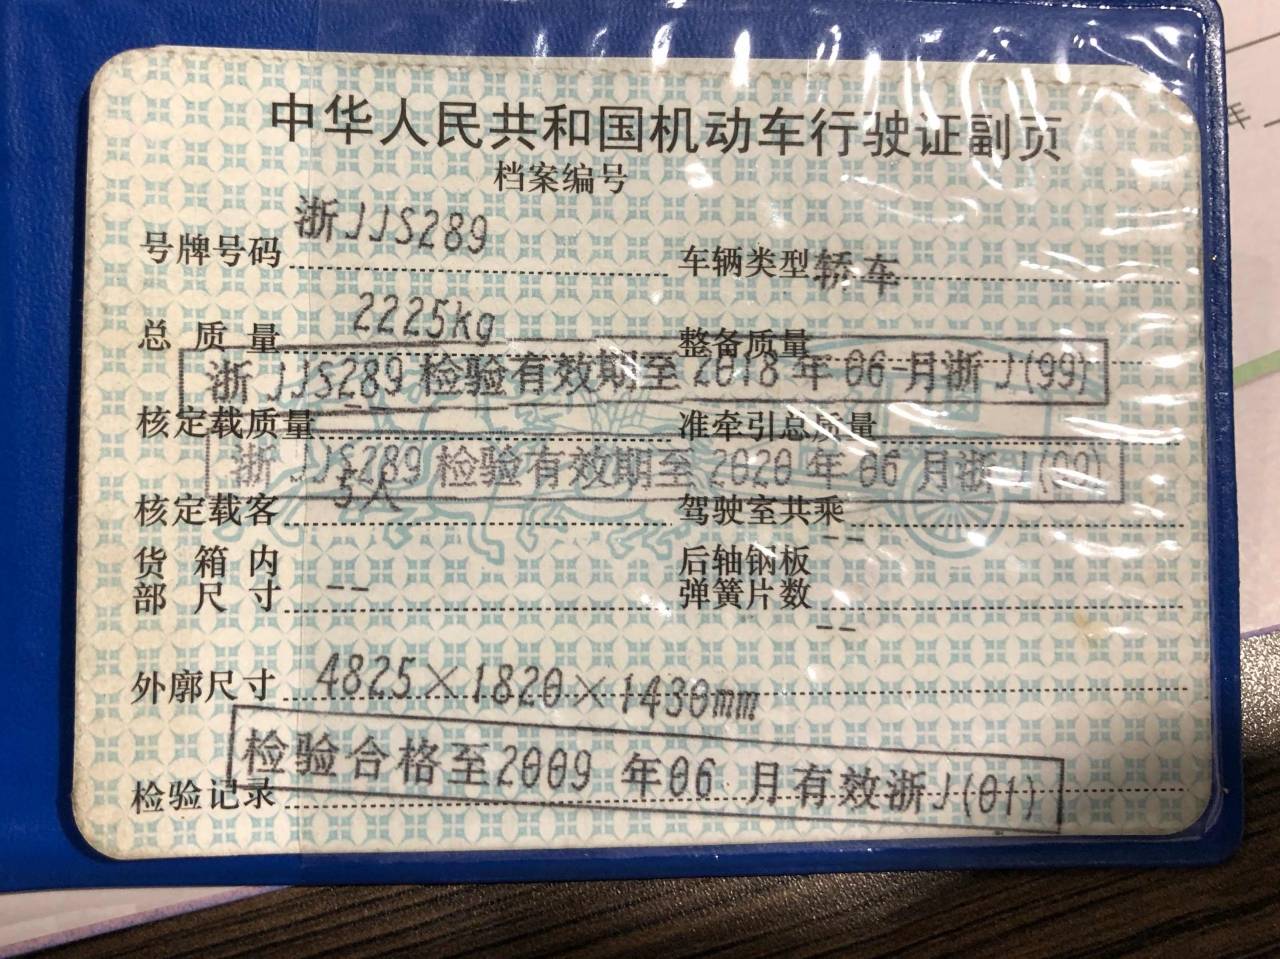 中华人民共和国机动车行驶证副页
档案编号
号牌号码 浙JJS289 车辆类型 轿车
总质量 2225kg 整备质量
浙JJS289 检验有效期至 2018 年 06 月浙J(99)
核定载质量 -- 准牵引总质量
浙JJS289 检验有效期至 2020 年 06 月浙J(99)
核定载客 5人 驾驶室共乘 --
货箱内 后轴钢板
部尺寸 -- 弹簧片数 --
外廓尺寸 4825×1820×1430mm
检验合格至2009 年06 月有效浙J(01)
检验记录